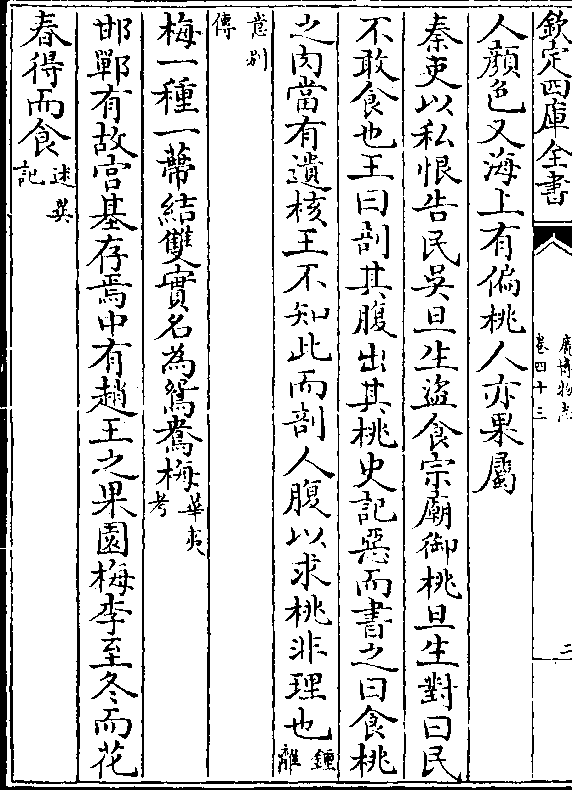 欽定四庫全書
廣博物志
卷四十三
三
人顔色又海上有偏桃人亦果屬
秦吏以私恨告民吳旦生盜食宗廟御桃旦生對曰民
不敢食也王曰剖其腹出其桃史記惡而書之曰食桃
之肉當有遺核王不知此而剖人腹以求桃非理也鍾離
意別傳
梅一種一蔕結雙實名為鴛鴦梅華夷考
邯鄲有故宫基存焉中有趙王之果園梅李至冬而花
春得而食述異記